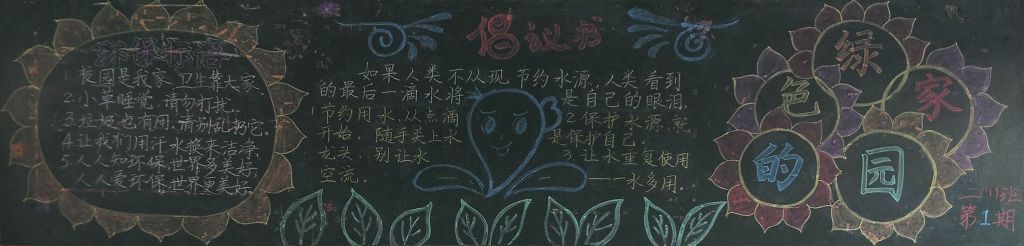 环保标语
1.校园是我家,卫生靠大家.
2.小草睡觉,请勿打扰.
3.垃圾也有用,请别乱扔它.
4.让我们用汗水换来洁净.
5.人人知环保,世界多美好,
人人爱环保,世界更美好.
倡议书
如果人类不从现 节约水源,人类看到
的最后一滴水将 是自己的眼泪.
1节约用水,从点滴
开始,随手关上水
龙头,别让水
空流.
2.保护水源,就
是保护自己.
3.让水重复使用
——水多用.
绿色的家园
二(1)班
第1期